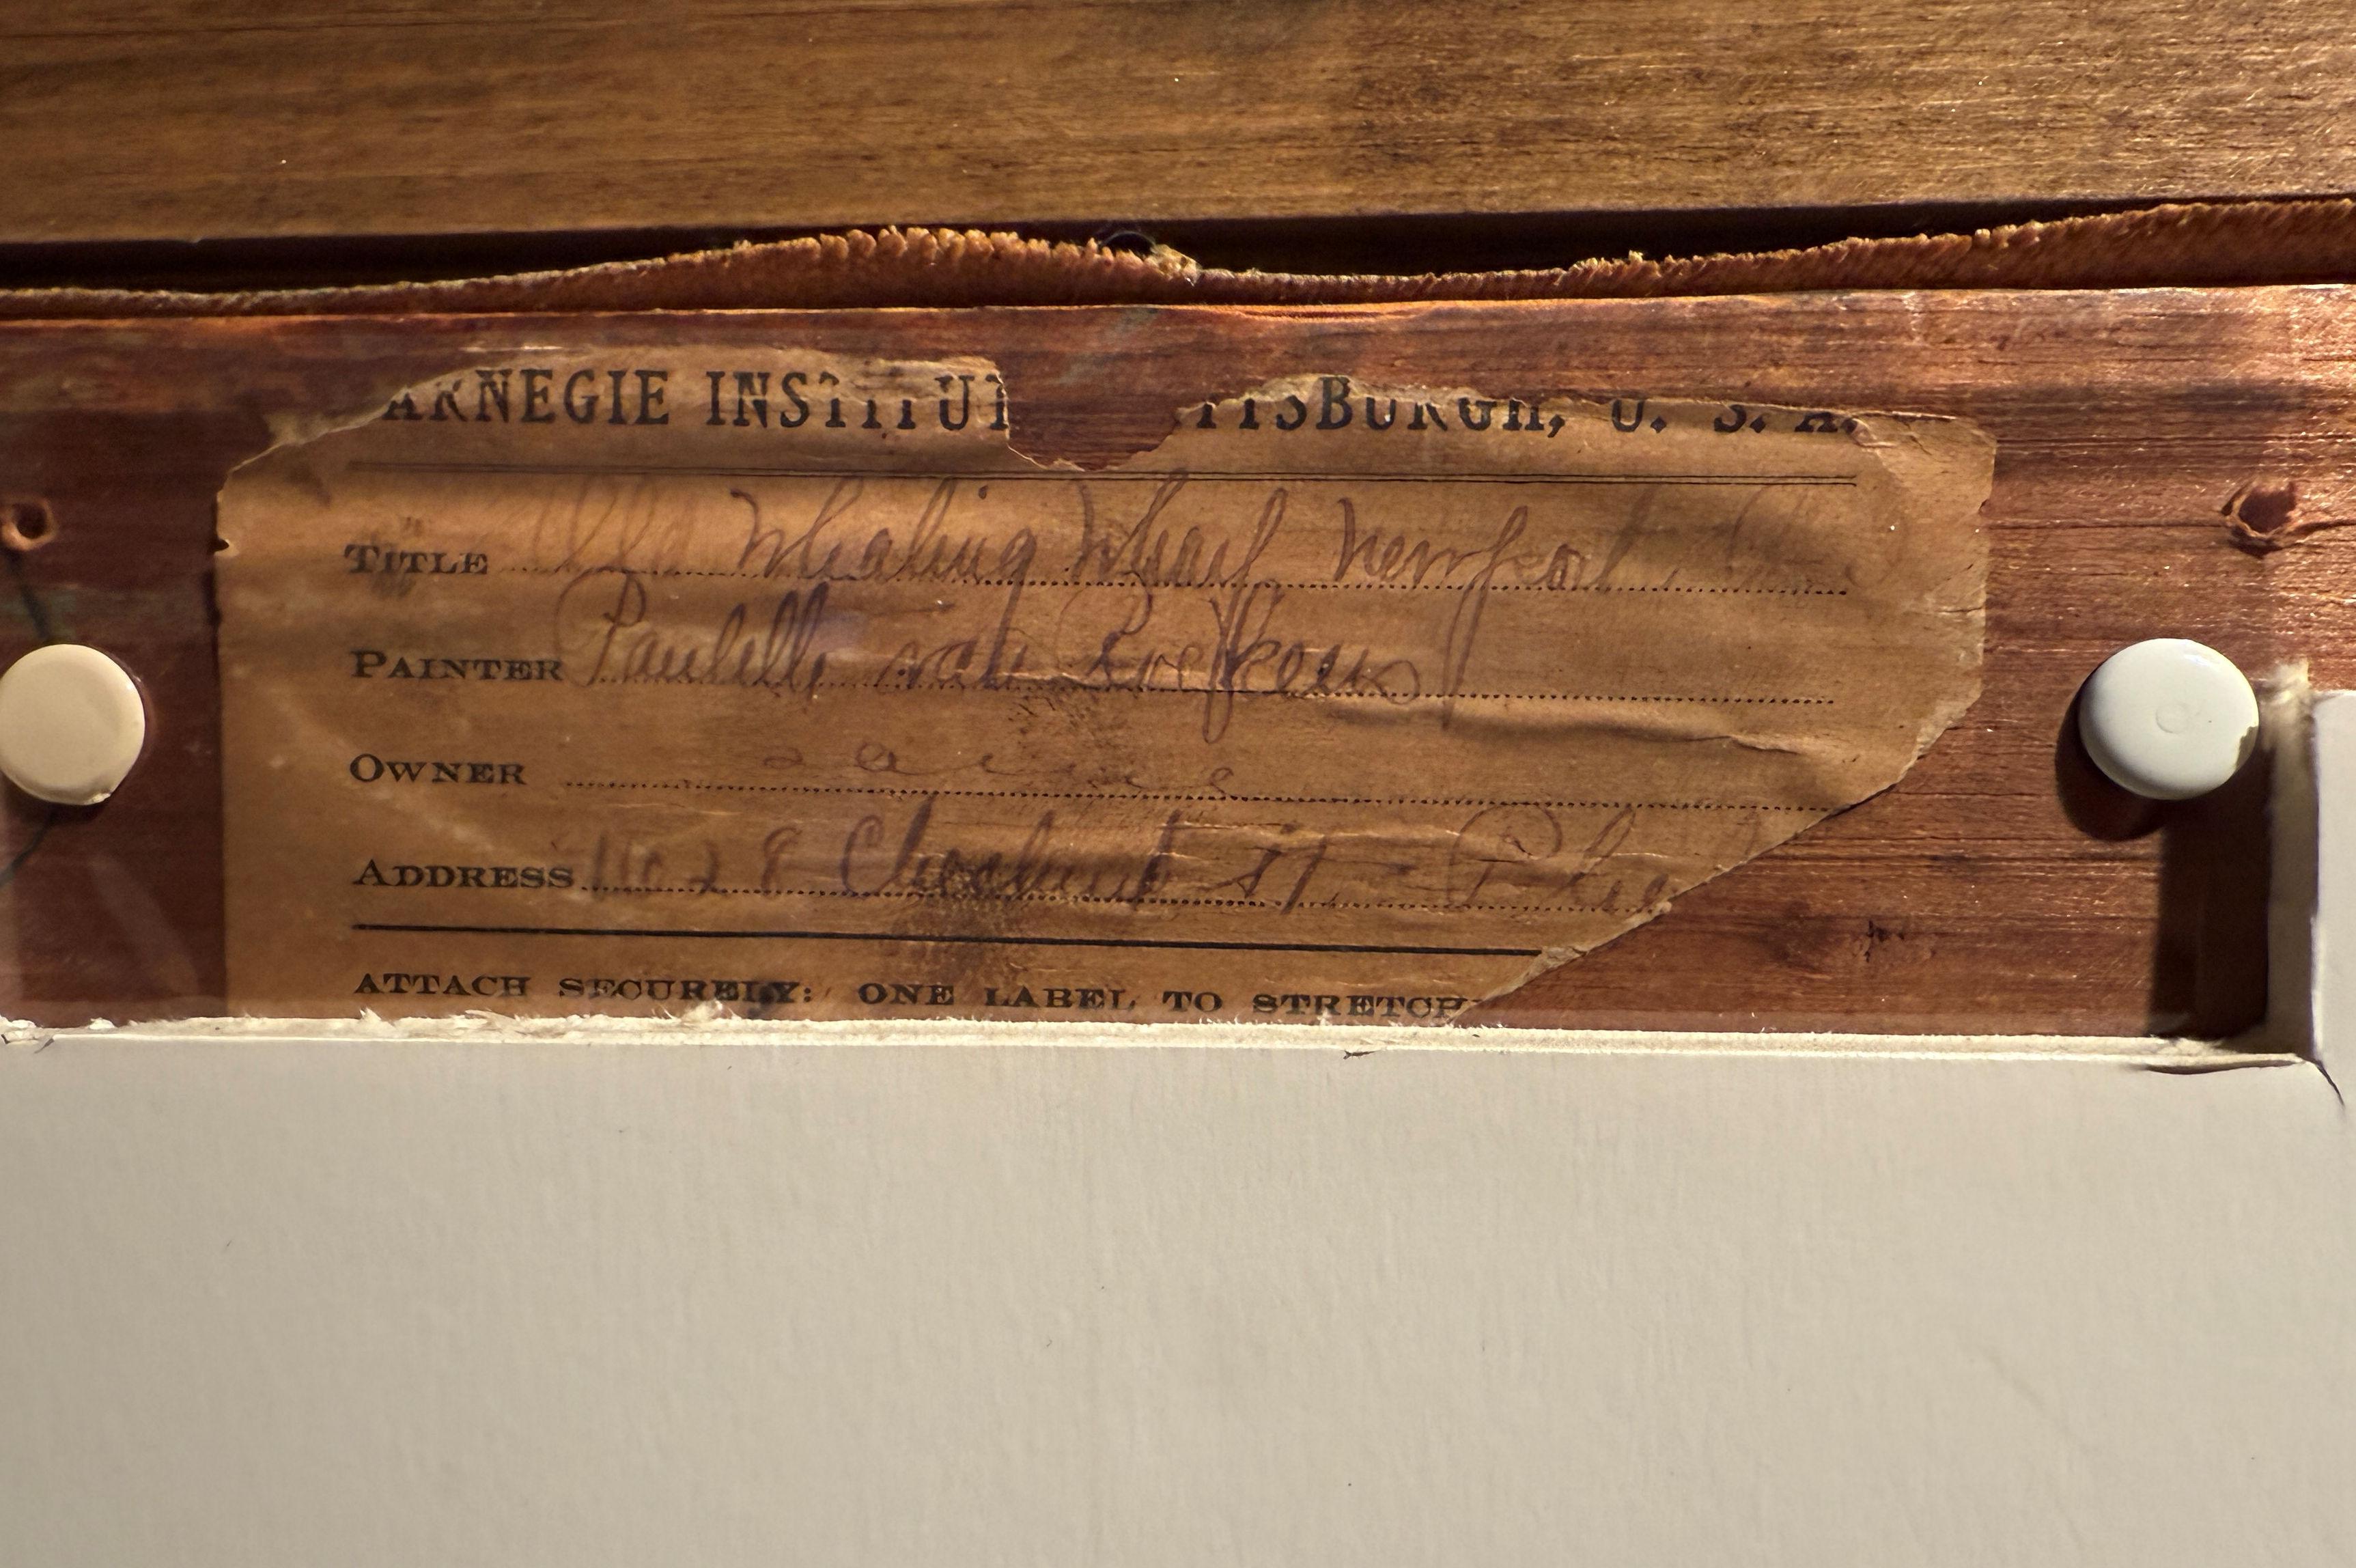 ARNEGIE INSTITUT ITTSBURGH, U. S. A.
TITLE Old Whaling Wharf Newport
PAINTER Paulette van Roekens
OWNER same
ADDRESS Chestnut St. - Phila
ATTACH SECURELY: ONE LABEL TO STRETCH